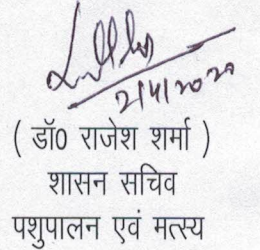 2/4/2020
( डॉ0 राजेश शर्मा )
शासन सचिव
पशुपालन एवं मत्स्य